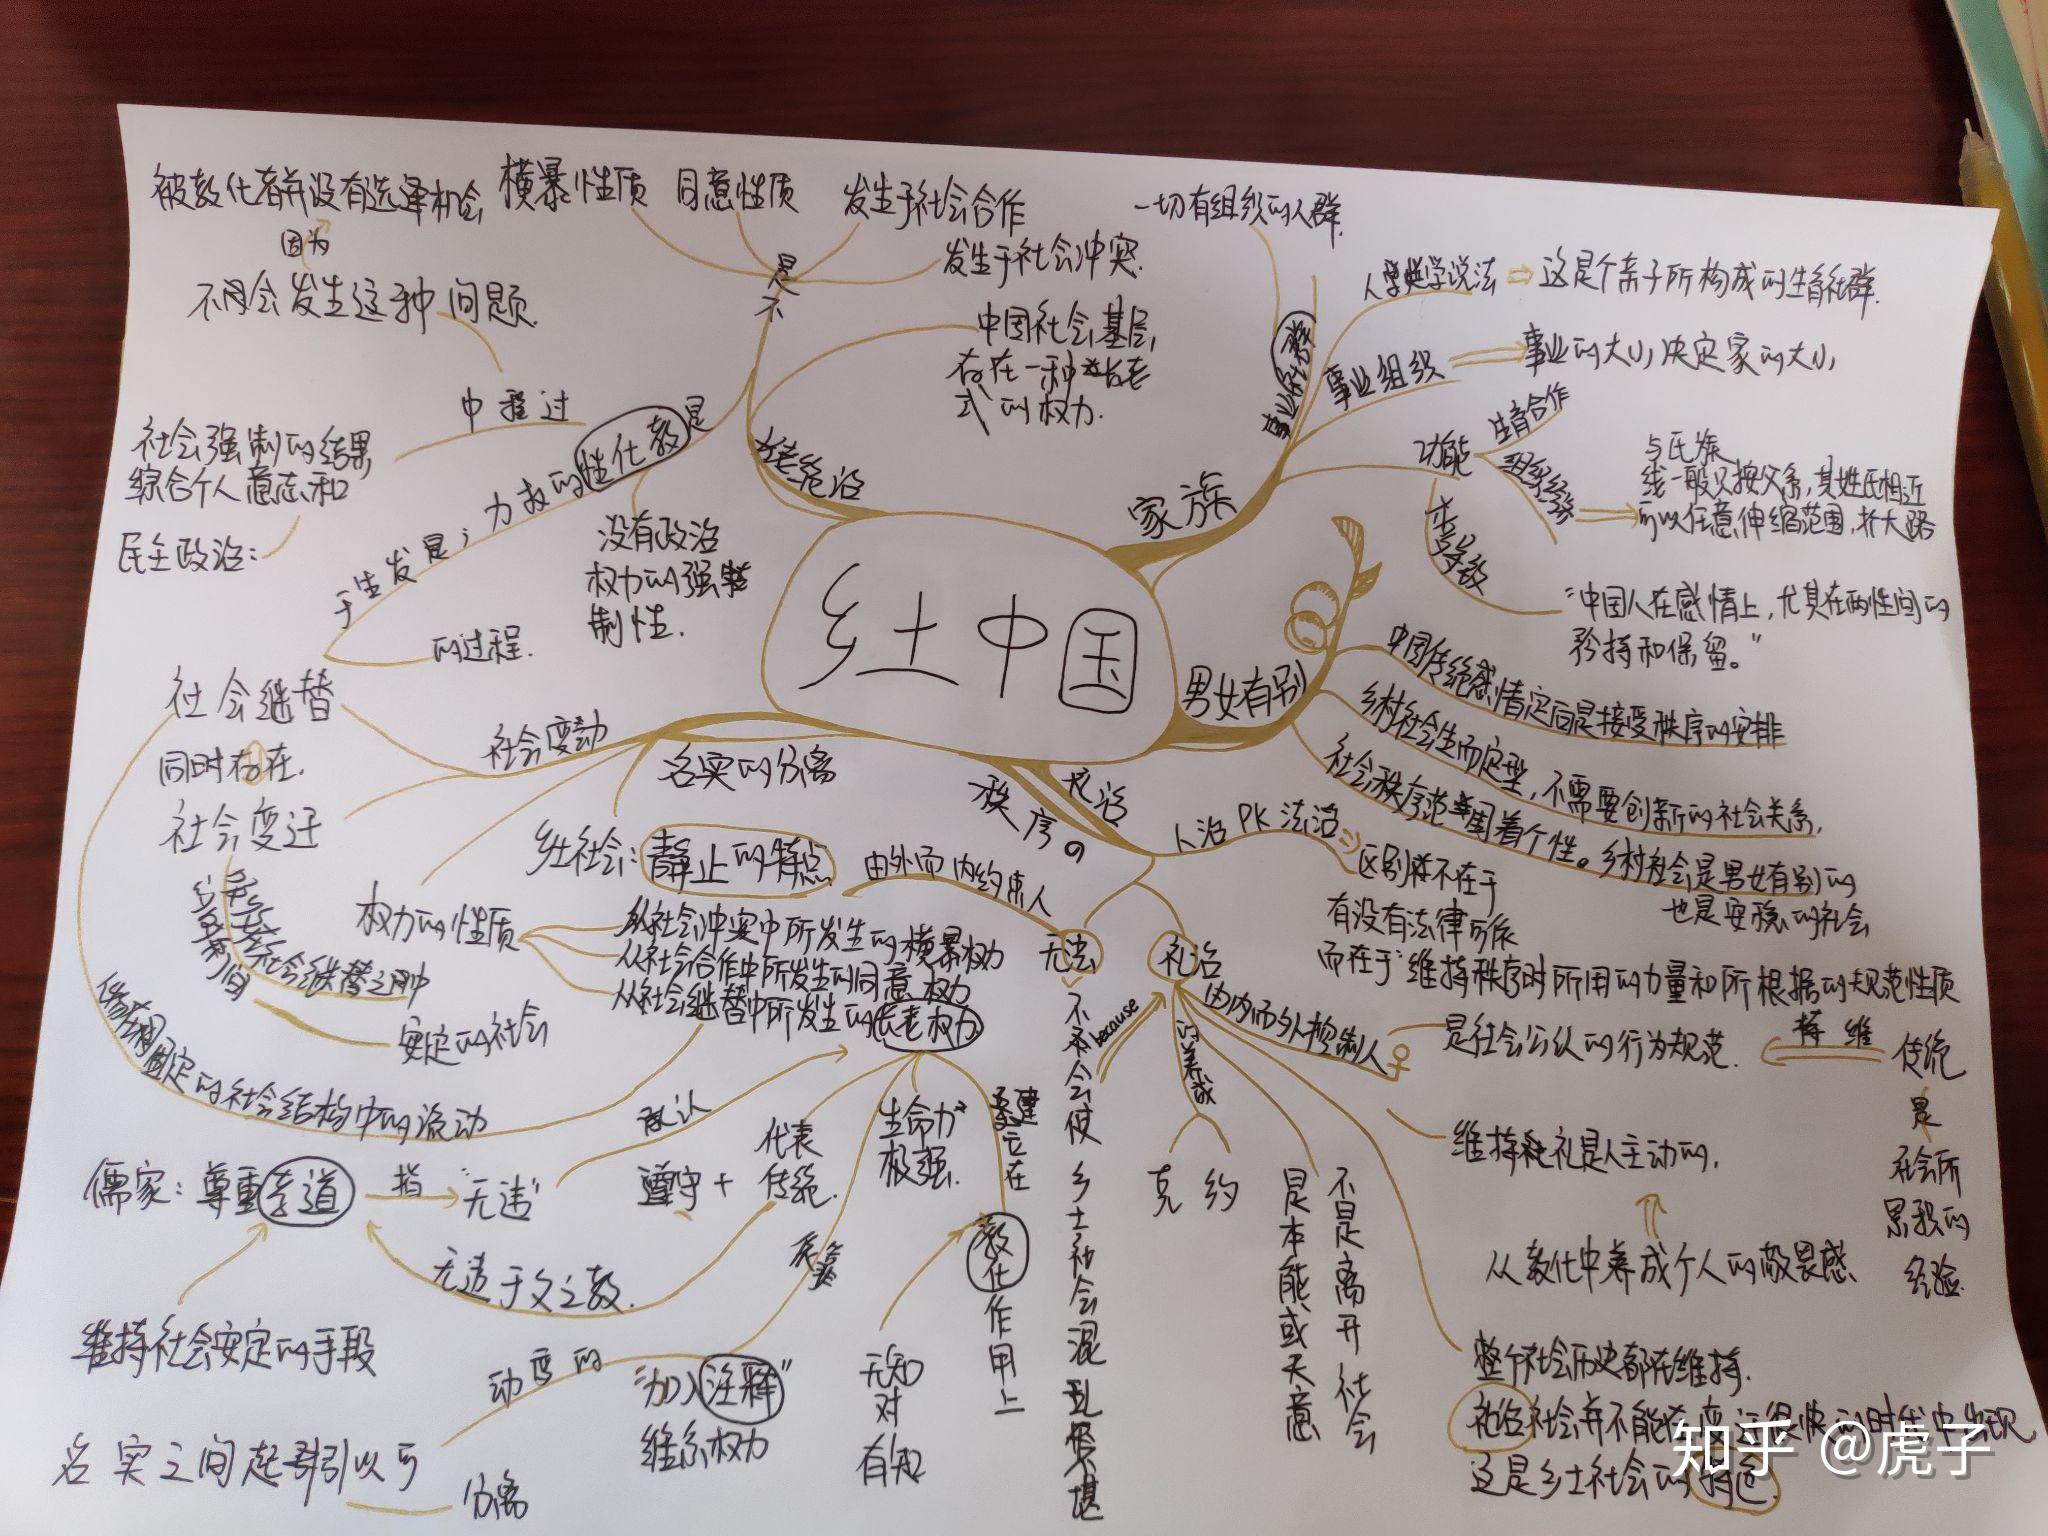 乡土中国
被教化者并没有选择机会
因为
不同会发生这种问题.
横暴性质
同意性质
发生于社会合作
发生于社会冲突.
不是
中国社会基层,
存在一种长老
式的权力.
中程过
社会强制的结果
综合个人意志和
民主政治:
是教化性的权力
是发生于
社会继替
的过程.
没有政治
权力的强
制性.
家族
一切有组织的人群.
事业社群
人类学说法
这是个亲子所构成的生育社群.
事业组织
事业的大小,决定家的大小
功能
生育合作
与氏族
一般只按父系,其姓氏相近
可以任意伸缩范围,扩大路
线
"中国人在感情上,尤其在两性间的
矜持和保留。"
男女有别
中国传统感情定向是接受秩序的安排
乡村社会生而定型,不需要创新的社会关系,
社会秩序范围着个性。乡村社会是男女有别的
也是安稳的社会
社会变动
同时存在.
社会变迁
安定的社会
固定的社会结构中的流动
名实的分离
乡土社会:静止的特点
权力的性质
从社会冲突中所发生的横暴权力
从社会合作中所发生的同意权力
从社会继替中所发生的长老权力
承认
遵守+代表
传统.
生命力
极强.
建立在
教化作用上
无知
对
有知
儒家:尊重孝道
指
"无违"
无违于父之教.
维持社会安定的手段
动变的
"加入注释"
维系权力
名实之间
分离
秩序
人治PK法治
区别不在于
有没有法律可依
而在于"维持秩序时所用的力量和所根据的规范性质
由外而内约束人
无法
不会使乡土社会混乱不堪
because
礼治
由内而外控制人
是社会公认的行为规范.
维持
传统
是
社会所
累积的
经验.
的养成
克
约
不是离开社会
是本能或天意
维持礼是人主动的,
从教化中养成个人的敬畏感
整个社会历史都在维持.
礼治社会并不能在变迁很快的时代中出现
这是乡土社会的特色.
知乎 @虎子